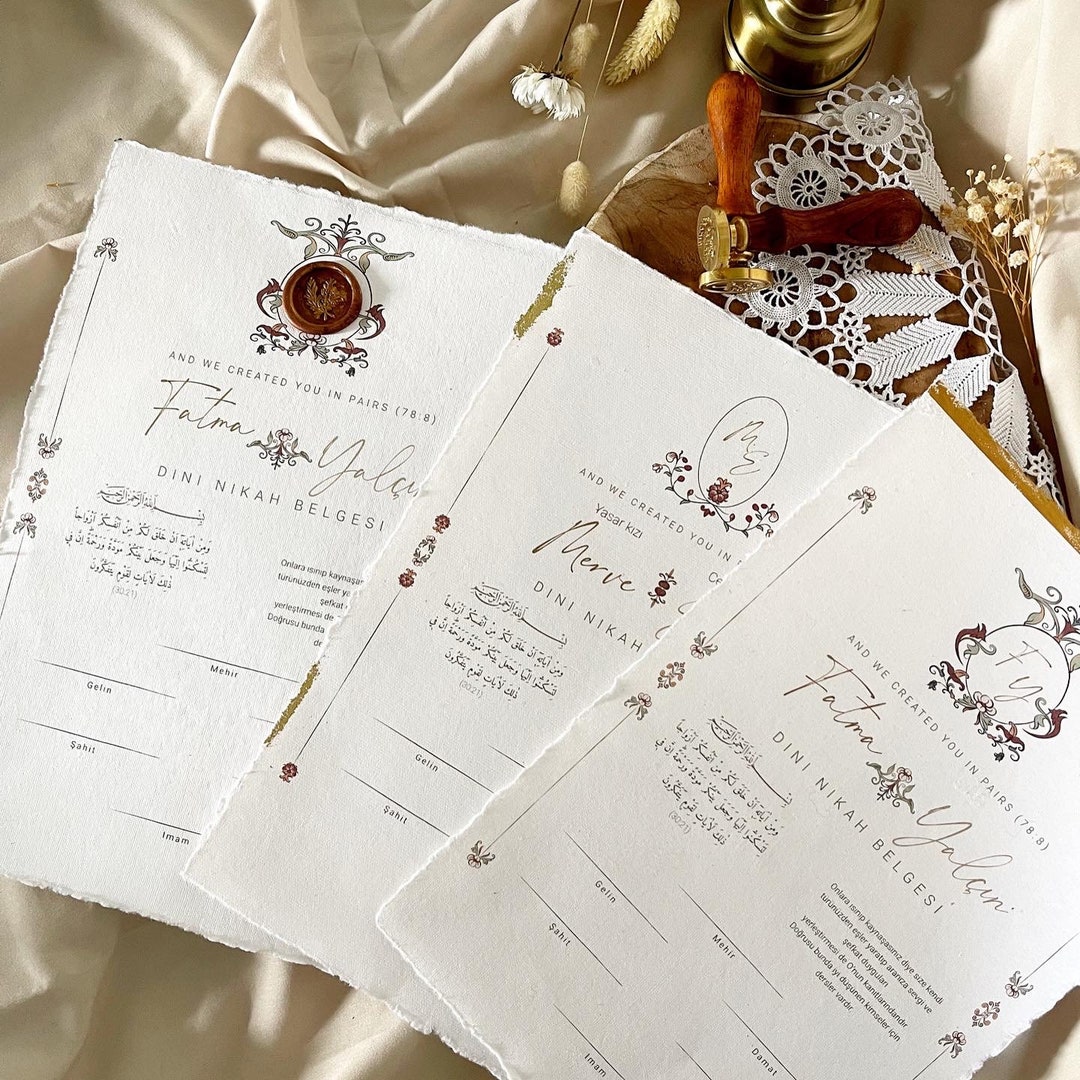 AND WE CREATED YOU IN PAIRS (78:8)
Fatma Yalçın
DINI NIKAH BELGESI
بِسْمِ اللَّهِ الرَّحْمَنِ الرَّحِيمِ
وَمِنْ آيَاتِهِ أَنْ خَلَقَ لَكُمْ مِنْ أَنْفُسِكُمْ أَزْوَاجاً
لِتَسْكُنُوا إِلَيْهَا وَجَعَلَ بَيْنَكُمْ مَوَدَّةً وَرَحْمَةً إِنَّ فِي
ذَلِكَ لَآيَاتٍ لِقَوْمٍ يَتَفَكَّرُونَ
(30:21)
Onlara ısınıp kaynaşa
türünüzden eşler ya
şefkat
yerleştirmesi de
Doğrusu bunda
de
Gelin
Mehir
Şahit
Imam
M E
AND WE CREATED YOU IN
Yasar kızı
Merve
DINI NIKAH
بِسْمِ اللَّهِ الرَّحْمَنِ الرَّحِيمِ
وَمِنْ آيَاتِهِ أَنْ خَلَقَ لَكُمْ مِنْ أَنْفُسِكُمْ أَزْوَاجاً
لِتَسْكُنُوا إِلَيْهَا وَجَعَلَ بَيْنَكُمْ مَوَدَّةً وَرَحْمَةً إِنَّ فِي
ذَلِكَ لَآيَاتٍ لِقَوْمٍ يَتَفَكَّرُونَ
(30:21)
Gelin
Şahit
F Y
AND WE CREATED YOU IN PAIRS (78:8)
Fatma Yalçın
DINI NIKAH BELGESI
بِسْمِ اللَّهِ الرَّحْمَنِ الرَّحِيمِ
وَمِنْ آيَاتِهِ أَنْ خَلَقَ لَكُمْ مِنْ أَنْفُسِكُمْ أَزْوَاجاً
لِتَسْكُنُوا إِلَيْهَا وَجَعَلَ بَيْنَكُمْ مَوَدَّةً وَرَحْمَةً إِنَّ فِي
ذَلِكَ لَآيَاتٍ لِقَوْمٍ يَتَفَكَّرُونَ
(30:21)
Onlara ısınıp kaynaşasınız diye size kendi
türünüzden eşler yaratıp aranıza sevgi ve
şefkat duyguları
yerleştirmesi de O'nun kanıtlarındandır
Doğrusu bunda iyi düşünen kimseler için
dersler vardır.
Gelin
Mehir
Şahit
Damat
Imam